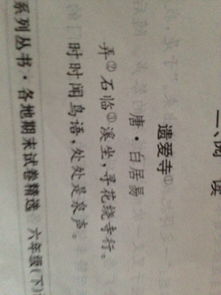 阅 读
遗爱寺①
唐·白居易
弄②石临③溪坐,寻花绕寺行。
时时闻鸟语,处处是泉声。
系列丛书·各地期末试卷精选 六年级(下)